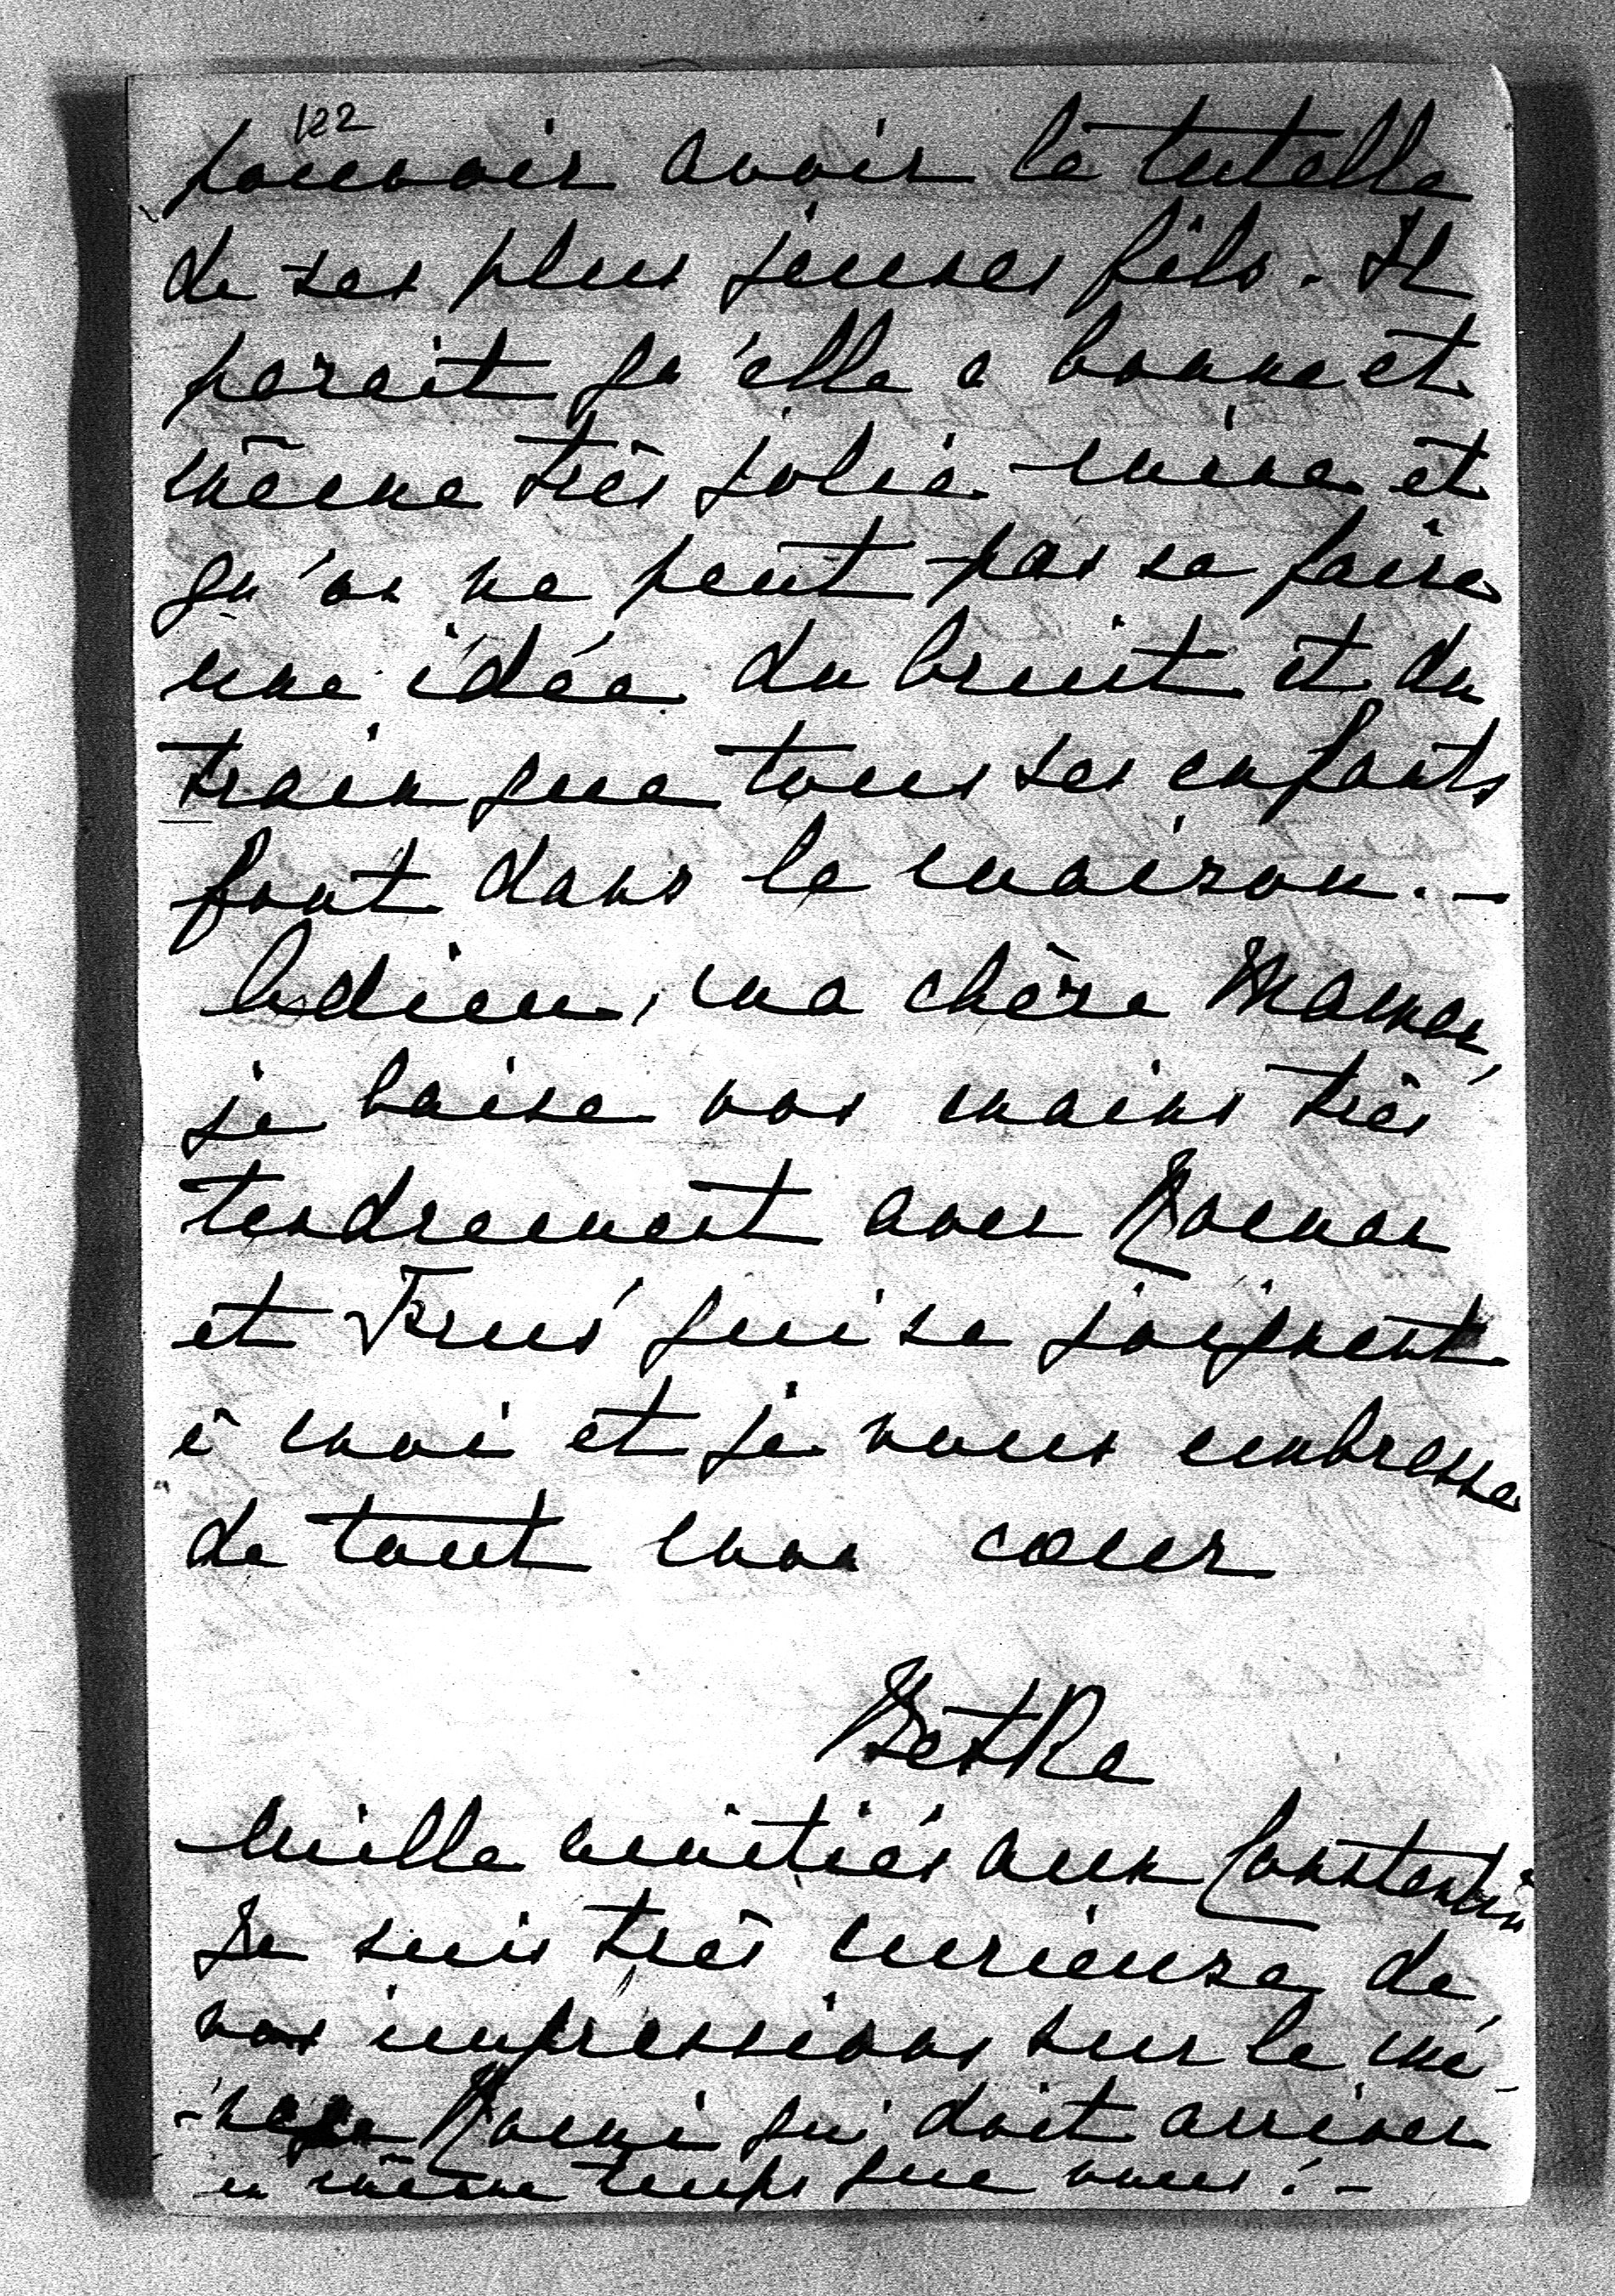 122
pouvoir avoir la tutelle
de ses plus jeunes fils. Il
parait qu'elle a bonne et
même très jolie mine et
qu'on ne peut pas se faire
une idée du bruit et du
train que tous ses enfants
font dans la maison. —
Adieu, ma chère Maman,
je baise vos mains très
tendrement avec Roman
et qui se joignent
à moi et je vous embrasse
de tout mon cœur
Betka
Mille amitiés aux Constantin
Je suis très curieuse de
vos impressions sur le mé-
-nage qui doit arriver
en même temps que vous! —